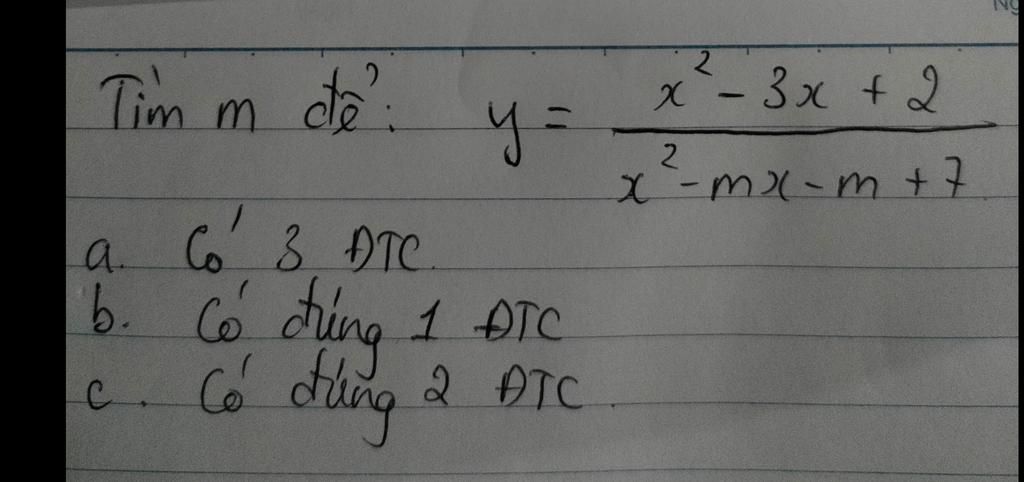 Tìm m để: y = \frac{x^2 - 3x + 2}{x^2 - mx - m + 7}
a. Có 3 ĐTC.
b. Có đúng 1 ĐTC
c. Có đúng 2 ĐTC.